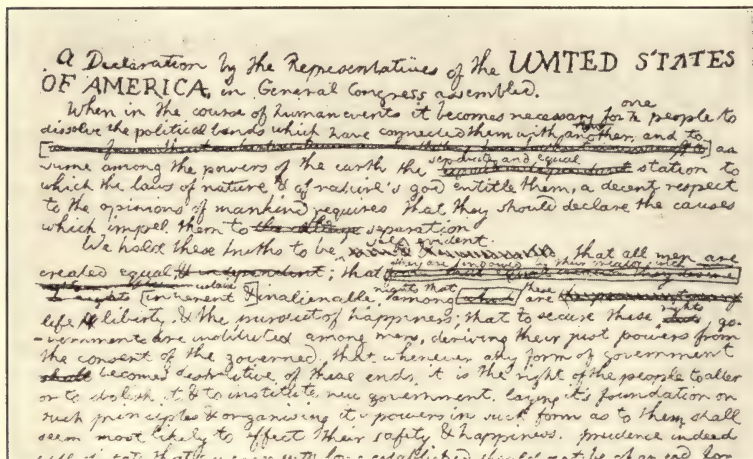 A Declaration by the Representatives of the UNITED STATES
OF AMERICA, in General Congress assembled.
When in the course of human events it becomes necessary for one people to
dissolve the political bands which have connected them with another, and to
as
separate and equal
sume among the powers of the earth the station to
which the laws of nature & of nature's god entitle them, a decent respect
to the opinions of mankind requires that they should declare the causes
which impel them to the separation.
We hold these truths to be self evident. that all men are
created equal & independent; that
they are endowed by their creator with
rights that these
inherent & inalienable, among are
rights
life & liberty, & the pursuit of happiness; that to secure these go-
-vernments are instituted among men, deriving their just powers from
the consent of the governed. that whenever any form of government
shall becomes destructive of these ends, it is the right of the people to alter
or to abolish it, & to institute new government, laying it's foundation on
such principles & organising it's powers in such form as to them shall
seem most likely to effect their safety & happiness. prudence indeed